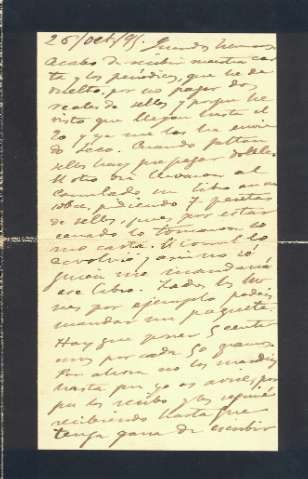 26/Oct/95. Querido hermano
Acabo de recibir vuestra car
ta y los periódicos, que he de
vuelto por no pagar dos
reales de sellos y porque he
visto que llegan hasta el
20 y ya me los ha envia
do Seco. Cuando faltan
sellos hay que pagar doble.
El otro día llevaron al
Consulado un libro
pidiendo 7 pesetas
de sellos, pues por estar
cerrado lo tomaron co
mo carta. El Consul lo
devolvió y así no sé
quien me mandaría
ese libro. Todos los lu
nes por ejemplo podéis
mandar un paquete.
Hay que poner 5 centi
mos por cada 50 gramos
Por ahora no los mandéis
hasta que yo os avise, por
que los recibo y los seguiré
recibiendo hasta que
tenga gana de escribir